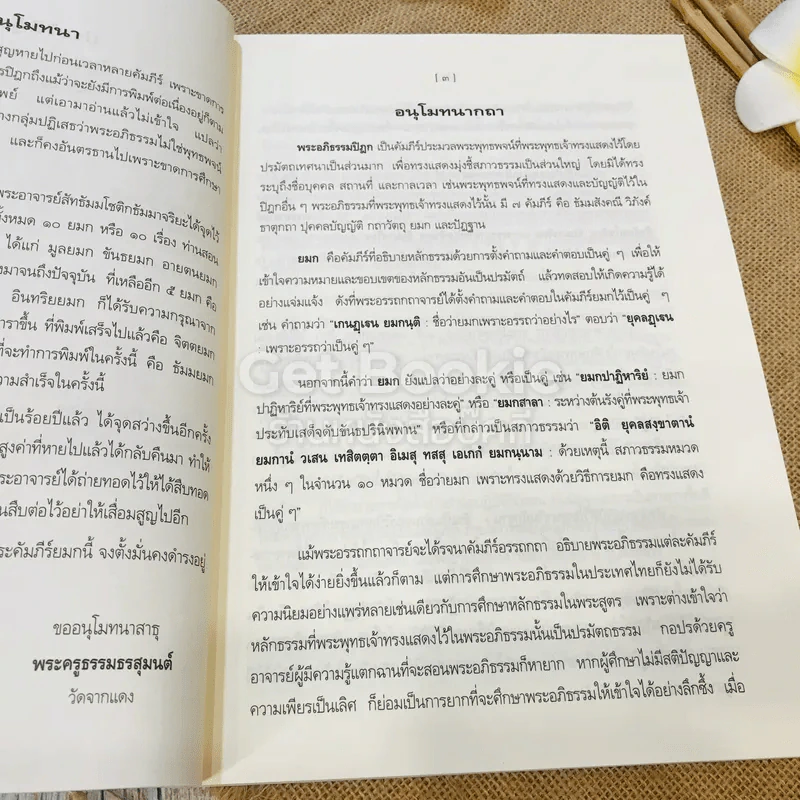 นุโมทนา
สูญหายไปก่อนเวลาหลายคัมภีร์ เพราะขาดการ
รปิฎกถึงแม้ว่าจะยังมีการพิมพ์ต่อเนื่องอยู่ก็ตาม
พย์ แต่เอามาอ่านแล้วไม่เข้าใจ แปลว่า
างกลุ่มปฏิเสธว่าพระอภิธรรมไม่ใช่พุทธพจน์
และก็คงอันตรธานไปเพราะขาดการศึกษา
พระอาจารย์สัทธัมมโชติกธัมมาจริยะได้จุดไว้
ทั้งหมด ๑๐ ยมก หรือ ๑๐ เรื่อง ท่านสอน
ได้แก่ มูลยมก ขันธยมก อายตนยมก
งมาจนถึงปัจจุบัน ที่เหลืออีก ๕ ยมก คือ
อินทริยยมก ก็ได้รับความกรุณาจาก
าราขึ้น ที่พิมพ์เสร็จไปแล้วคือ จิตตยมก
ที่จะทำการพิมพ์ในครั้งนี้ คือ ธัมมยมก
ความสำเร็จในครั้งนี้
เป็นร้อยปีแล้ว ได้จุดสว่างขึ้นอีกครั้ง
สูงค่าที่หายไปแล้วได้กลับคืนมา ทำให้
ระอาจารย์ได้ถ่ายทอดไว้ให้ได้สืบทอด
นสืบต่อไว้อย่าให้เสื่อมสูญไปอีก
ะคัมภีร์ยมกนี้ จงตั้งมั่นคงดำรงอยู่
ขออนุโมทนาสาธุ
พระครูธรรมธรสุมนต์
วัดจากแดง
[ ๓ ]
อนุโมทนากถา
พระอภิธรรมปิฎก เป็นคัมภีร์ประมวลพระพุทธพจน์ที่พระพุทธเจ้าทรงแสดงไว้โดย
ปรมัตถเทศนาเป็นส่วนมาก เพื่อทรงแสดงมุ่งชี้สภาวธรรมเป็นส่วนใหญ่ โดยมิได้ทรง
ระบุถึงชื่อบุคคล สถานที่ และกาลเวลา เช่นพระพุทธพจน์ที่ทรงแสดงและบัญญัติไว้ใน
ปิฎกอื่น ๆ พระอภิธรรมที่พระพุทธเจ้าทรงแสดงไว้นั้น มี ๗ คัมภีร์ คือ ธัมมสังคณี วิภังค์
ธาตุกถา ปุคคลบัญญัติ กถาวัตถุ ยมก และปัฏฐาน
ยมก คือคัมภีร์ที่อธิบายหลักธรรมด้วยการตั้งคำถามและคำตอบเป็นคู่ ๆ เพื่อให้
เข้าใจความหมายและขอบเขตของหลักธรรมอันเป็นปรมัตถ์ แล้วทดสอบให้เกิดความรู้ได้
อย่างแจ่มแจ้ง ดังที่พระอรรถกถาจารย์ได้ตั้งคำถามและคำตอบในคัมภีร์ยมกไว้เป็นคู่ ๆ
เช่น คำถามว่า "เกนฏฺเฐน ยมกนฺติ : ชื่อว่ายมกเพราะอรรถว่าอย่างไร" ตอบว่า "ยุคลฏฺเฐน
: เพราะอรรถว่าเป็นคู่ ๆ"
Get Bookie
นอกจากนี้คำว่า ยมก ยังแปลว่าอย่างละคู่ หรือเป็นคู่ เช่น "ยมกปาฏิหาริยํ : ยมก
ปาฏิหาริย์ที่พระพุทธเจ้าทรงแสดงอย่างละคู่" หรือ "ยมกสาลา : ระหว่างต้นรังคู่ที่พระพุทธเจ้า
ประทับเสด็จดับขันธปรินิพพาน" หรือที่กล่าวเป็นสภาวธรรมว่า "อิติ ยุคลสงฺขาตานํ
ยมกานํ วเสน เทสิตตฺตา อิเมสุ ทสสุ เอเกกํ ยมกนฺนาม : ด้วยเหตุนี้ สภาวธรรมหมวด
หนึ่ง ๆ ในจำนวน ๑๐ หมวด ชื่อว่ายมก เพราะทรงแสดงด้วยวิธีการยมก คือทรงแสดง
เป็นคู่ ๆ"
แม้พระอรรถกถาจารย์จะได้รจนาคัมภีร์อรรถกถา อธิบายพระอภิธรรมแต่ละคัมภีร์
ให้เข้าใจได้ง่ายยิ่งขึ้นแล้วก็ตาม แต่การศึกษาพระอภิธรรมในประเทศไทยก็ยังไม่ได้รับ
ความนิยมอย่างแพร่หลายเช่นเดียวกับการศึกษาหลักธรรมในพระสูตร เพราะต่างเข้าใจว่า
หลักธรรมที่พระพุทธเจ้าทรงแสดงไว้ในพระอภิธรรมนั้นเป็นปรมัตถธรรม กอปรด้วยครู
อาจารย์ผู้มีความรู้แตกฉานที่จะสอนพระอภิธรรมก็หายาก หากผู้ศึกษาไม่มีสติปัญญาและ
ความเพียรเป็นเลิศ ก็ย่อมเป็นการยากที่จะศึกษาพระอภิธรรมให้เข้าใจได้อย่างลึกซึ้ง เมื่อ